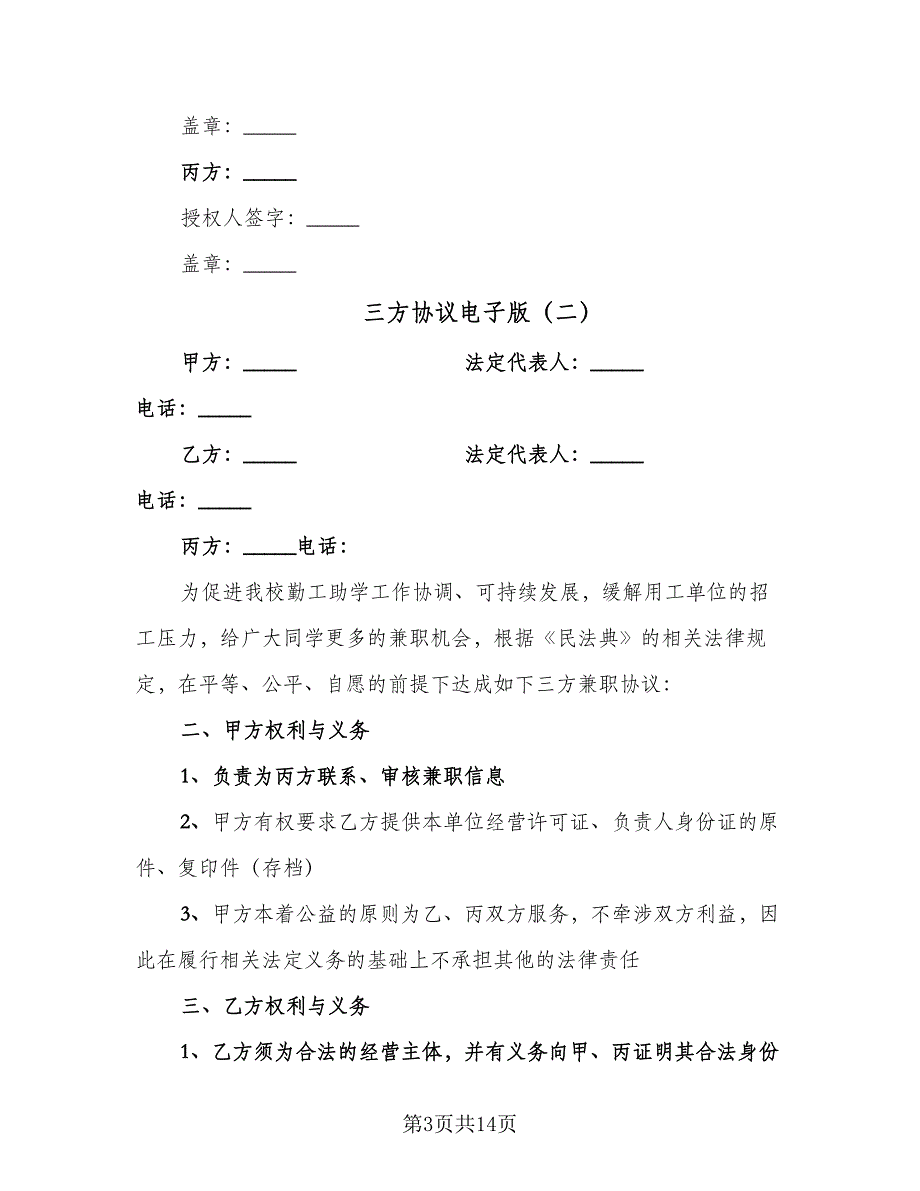 盖章：_____
丙方：_____
授权人签字：_____
盖章：_____
三方协议电子版（二）
甲方：_____ 法定代表人：_____
电话：_____
乙方：_____ 法定代表人：_____
电话：_____
丙方：_____电话：
为促进我校勤工助学工作协调、可持续发展，缓解用工单位的招
工压力，给广大同学更多的兼职机会，根据《民法典》的相关法律规
定，在平等、公平、自愿的前提下达成如下三方兼职协议：
二、甲方权利与义务
1、负责为丙方联系、审核兼职信息
2、甲方有权要求乙方提供本单位经营许可证、负责人身份证的原
件、复印件（存档）
3、甲方本着公益的原则为乙、丙双方服务，不牵涉双方利益，因
此在履行相关法定义务的基础上不承担其他的法律责任
三、乙方权利与义务
1、乙方须为合法的经营主体，并有义务向甲、丙证明其合法身份
第3页共14页